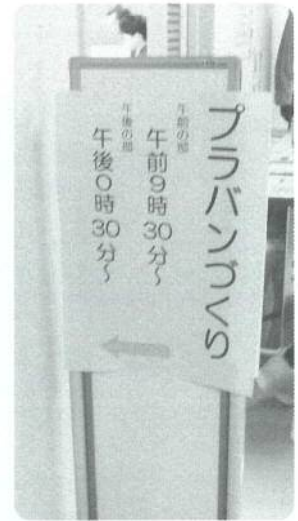 プラバンづくり
午前の部
午前9時30分～
午後の部
午後0時30分～